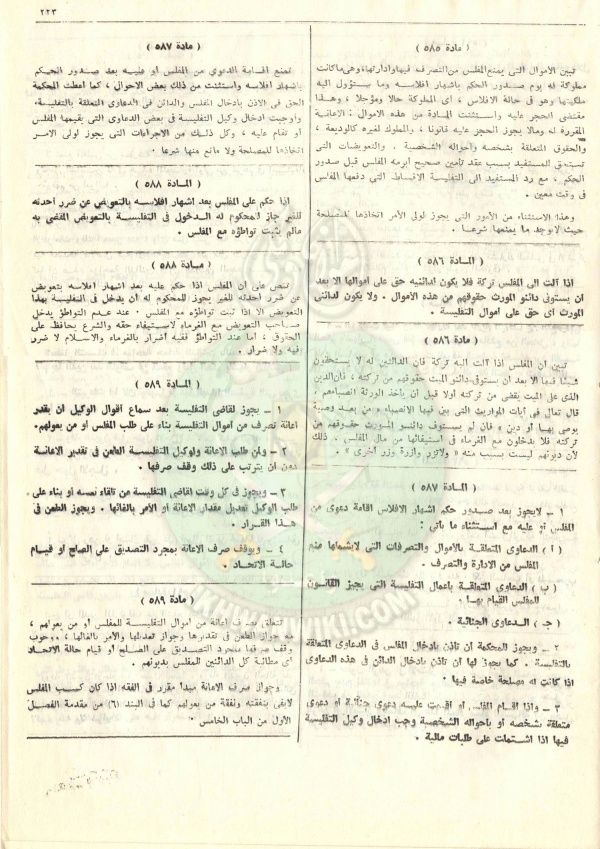 ٢٢٣
مادة ٥٨٥ )
تبين الأموال التى يمنع المفلس من التصرف فيها وادارتها وهى ما كانت
مملوكة له يوم صدور الحكم بإشهار افلاسه وما ستؤول اليه
ملكيتها وهو فى حالة الافلاس ، اى المملوكة حالا ومؤجلا ، وهذا
مقتضى الحجر عليه واستثنت المادة من هذه الاموال : الاعانة
المقررة له ومالا يجوز الحجز عليه قانونا ، والمملوك لغيره كالوديعة ،
والحقوق المتعلقة بشخصه وأحواله الشخصية . والتعويضات التى
تستحق للمستفيد بسبب عقد تأمين صحيح أبرمه المفلس قبل صدور
الحكم ، مع رد المستفيد الى التفليسة الاقساط التى دفعها المفلس
فى وقت معين .
وهذا الاستثناء من الأمور التى يجوز لولى الأمر اتخاذها للمصلحة
حيث لا يوجد ما يمنعها شرعا .
( المادة ٥٨٦
اذا آلت الى المفلس تركة فلا يكون لدائنيه حق على أموالها الا بعد
أن يستوفى دائنو المورث حقوقهم من هذه الأموال . ولا يكون لدائنى
المورث أى حق على أموال التفليسة .
مادة ٥٨٦ )
تبين أن المفلس اذا آلت اليه تركة فان الدائنين له لا يستحقون
شيئا فيها الا بعد أن يستوفى دائنو الميت حقوقهم من تركته ، فان الدين
الذى على الميت يقضى من تركته أولا قبل أن يأخذ الورثة انصباءهم .
قال تعالى فى آيات المواريث التى بين فيها الانصباء « من بعد وصية
يوصى بها أو دين » فان لم يستوف دائنو المورث حقوقهم من
تركته فلا يدخلون مع الغرماء فى استيفائها من مال المفلس . ذلك
لأن ديونهم ليست بسبب منه « ولا تزر وازرة وزر أخرى » .
( المادة ٥٨٧ )
١ ـ لا يجوز بعد صدور حكم اشهار الافلاس اقامة دعوى من
المفلس أو عليه مع استثناء ما يأتى :
( أ ) الدعاوى المتعلقة بالأموال والتصرفات التى لا يشملها منع
المفلس من الادارة والتصرف .
( ب ) الدعاوى المتعلقة بأعمال التفليسة التى يجيز القانون
للمفلس القيام بها .
( جـ ) الدعاوى الجنائية .
٢ ـ ويجوز للمحكمة أن تأذن بادخال المفلس فى الدعاوى المتعلقة
بالتفليسة . كما يجوز لها أن تأذن بادخال الدائن فى هذه الدعاوى
اذا كانت له مصلحة خاصة فيها .
٣ ـ واذا أقام المفلس أو أقيمت عليه دعوى جنائية أو دعوى
متعلقة بشخصه أو بأحواله الشخصية وجب ادخال وكيل التفليسة
فيها اذا اشتملت على طلبات مالية .
( مادة ٥٨٧ )
تمنع اقامة الدعوى من المفلس أو عليه بعد صدور الحكم
باشهار افلاسه واستثنت من ذلك بعض الاحوال ، كما أعطت المحكمة
الحق فى الاذن بادخال المفلس والدائن فى الدعاوى المتعلقة بالتفليسة .
وأوجبت ادخال وكيل التفليسة فى بعض الدعاوى التى يقيمها المفلس
أو تقام عليه ، وكل ذلك من الاجراءات التى يجوز لولى الأمر
اتخاذها للمصلحة ولا مانع منها شرعا .
( المادة ٥٨٨ )
اذا حكم على المفلس بعد اشهار افلاسه بالتعويض عن ضرر أحدثه
للغير جاز للمحكوم له الدخول فى التفليسة بالتعويض المقضى به
مالم يثبت تواطؤه مع المفلس .
( مادة ٥٨٨ )
تنص على أن المفلس اذا حكم عليه بعد اشهار افلاسه بتعويض
عن ضرر أحدثه للغير يجوز للمحكوم له أن يدخل فى التفليسة بهذا
التعويض الا اذا ثبت تواطؤه مع المفلس . فعند عدم التواطؤ يدخل
صاحب التعويض مع الغرماء لاستيفاء حقه والشرع يحافظ على
الحقوق ، أما عند التواطؤ ففيه أضرار بالغرماء والاسلام لا ضرر
فيه ولا ضرار .
( المادة ٥٨٩ )
١ ـ يجوز لقاضى التفليسة بعد سماع أقوال الوكيل أن يقدر
اعانة تصرف من أموال التفليسة بناء على طلب المفلس أو من يعولهم .
٢ ـ ولمن طلب الاعانة ولوكيل التفليسة الطعن فى تقدير الاعانة
دون أن يترتب على ذلك وقف صرفها .
٣ ـ ويجوز فى كل وقت لقاضى التفليسة من تلقاء نفسه أو بناء على
طلب الوكيل تعديل مقدار الاعانة أو الأمر بالغائها . ويجوز الطعن فى
هذا القرار .
٤ ـ ويوقف صرف الاعانة بمجرد التصديق على الصلح أو قيام
حالة الاتحاد .
( مادة ٥٨٩ )
تتعلق بصرف اعانة من أموال التفليسة للمفلس أو من يعولهم ،
مع جواز الطعن فى تقديرها وجواز تعديلها والأمر بالغائها ، ووجوب
وقف صرفها بمجرد التصديق على الصلح أو قيام حالة الاتحاد
أى مطالبة كل الدائنين للمفلس بديونهم .
وجواز صرف الاعانة مبدأ مقرر فى الفقه اذا كان كسب المفلس
لا يفى بنفقته ونفقة من يعولهم كما فى البند (٦) من مقدمة الفصل
الأول من الباب الخامس .